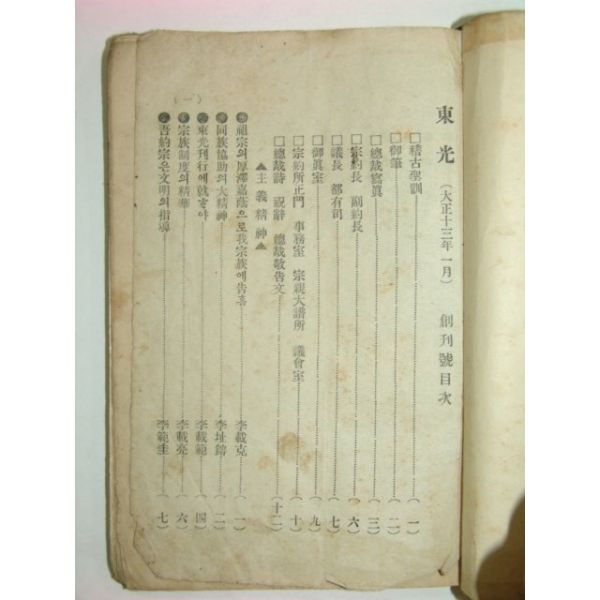 東光 (大正十三年一月) 創刊號目次
□稽古聖訓 (一)
□御筆 (二)
□總裁寫眞 (三)
□宗約長 副約長 (六)
□議長 都有司 (七)
□御眞室 (九)
□宗約所正門 事務室 宗親大譜所 議會室 (十)
□總裁詩 祝辭 總裁敬告文 (十二)
▲主義精神▲
祖宗의厚澤嘉蔭으로我宗族에告홈 李載克 (一)
同族協助의大精神 李址鎔 (二)
東光刊行에就하야 李載範 (四)
宗族制度의精華 李載亮 (六)
吾約宗은文明의指導 李範圭 (七)
(一)